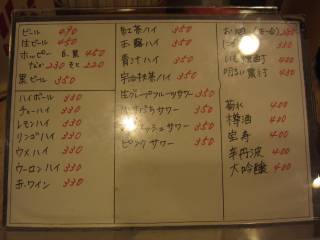 ビール 490
生ビール 450
ホッピー 白 黒 450
なか 230 そと 220
黒ビール 350
ハイボール 330
チューハイ 330
レモンハイ 330
リンゴハイ 330
ウメハイ 330
ウーロンハイ 330
赤ワイン 330
紅茶ハイ 350
350
青汁ハイ 350
宇治抹茶ハイ 350
生グレープフルーツサワー 350
サワー 350
サワー 350
ピンクサワー 350
380
430
430
菊水 400
樽酒 400
宝寿 400
辛丹波 400
大吟醸 400